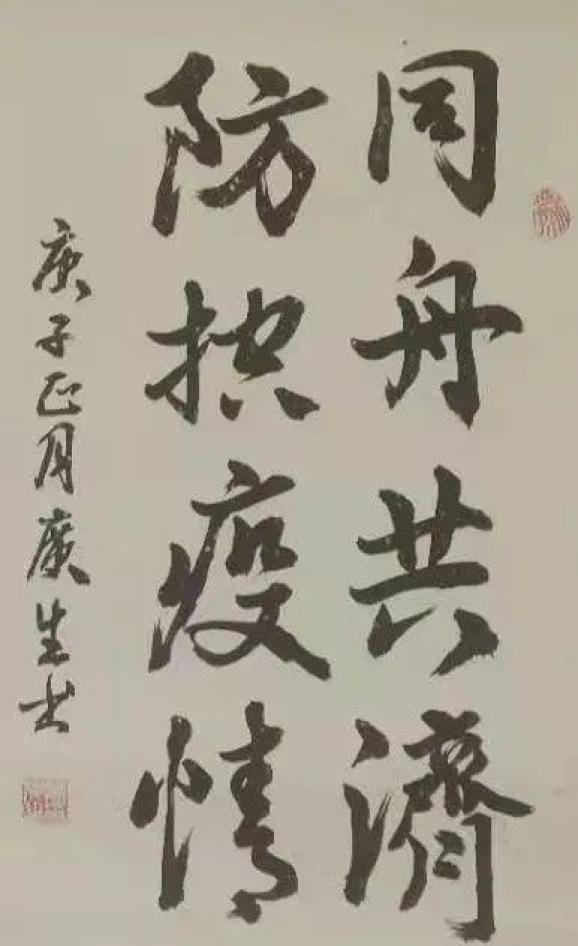 同舟共濟
防控疫情
庚子正月廣生书